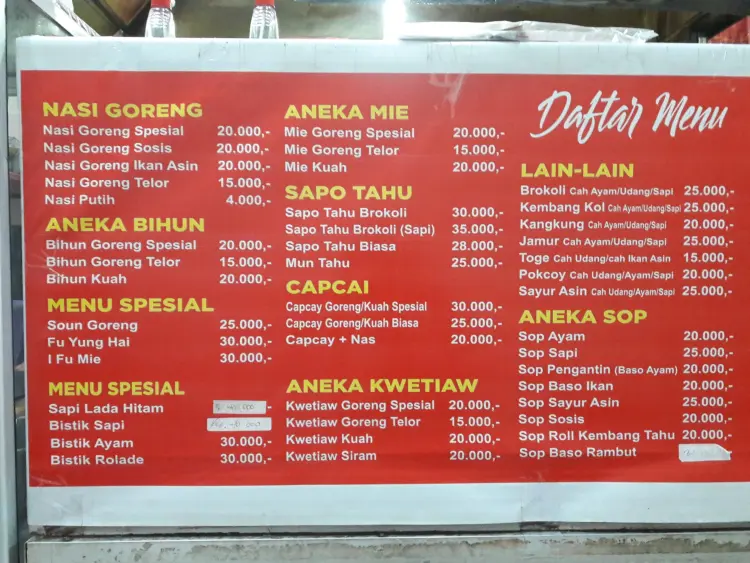 Daftar Menu
NASI GORENG
Nasi Goreng Spesial 20.000,-
Nasi Goreng Sosis 20.000,-
Nasi Goreng Ikan Asin 20.000,-
Nasi Goreng Telor 15.000,-
Nasi Putih 4.000,-
ANEKA BIHUN
Bihun Goreng Spesial 20.000,-
Bihun Goreng Telor 15.000,-
Bihun Kuah 20.000,-
MENU SPESIAL
Soun Goreng 25.000,-
Fu Yung Hai 30.000,-
I Fu Mie 30.000,-
MENU SPESIAL
Sapi Lada Hitam
Bistik Sapi
Bistik Ayam 30.000,-
Bistik Rolade 30.000,-
ANEKA MIE
Mie Goreng Spesial 20.000,-
Mie Goreng Telor 15.000,-
Mie Kuah 20.000,-
SAPO TAHU
Sapo Tahu Brokoli 30.000,-
Sapo Tahu Brokoli (Sapi) 35.000,-
Sapo Tahu Biasa 28.000,-
Mun Tahu 25.000,-
CAPCAI
Capcay Goreng/Kuah Spesial 30.000,-
Capcay Goreng/Kuah Biasa 25.000,-
Capcay + Nas 20.000,-
ANEKA KWETIAW
Kwetiaw Goreng Spesial 20.000,-
Kwetiaw Goreng Telor 15.000,-
Kwetiaw Kuah 20.000,-
Kwetiaw Siram 20.000,-
LAIN-LAIN
Brokoli Cah Ayam/Udang/Sapi 25.000,-
Kembang Kol Cah Ayam/Udang/Sapi 25.000,-
Kangkung Cah Ayam/Udang/Sapi 20.000,-
Jamur Cah Ayam/Udang/Sapi 25.000,-
Toge Cah Udang/cah Ikan Asin 15.000,-
Pokcoy Cah Udang/Ayam/Sapi 20.000,-
Sayur Asin Cah Udang/Ayam/Sapi 25.000,-
ANEKA SOP
Sop Ayam 20.000,-
Sop Sapi 25.000,-
Sop Pengantin (Baso Ayam) 20.000,-
Sop Baso Ikan 20.000,-
Sop Sayur Asin 25.000,-
Sop Sosis 20.000,-
Sop Roll Kembang Tahu 20.000,-
Sop Baso Rambut